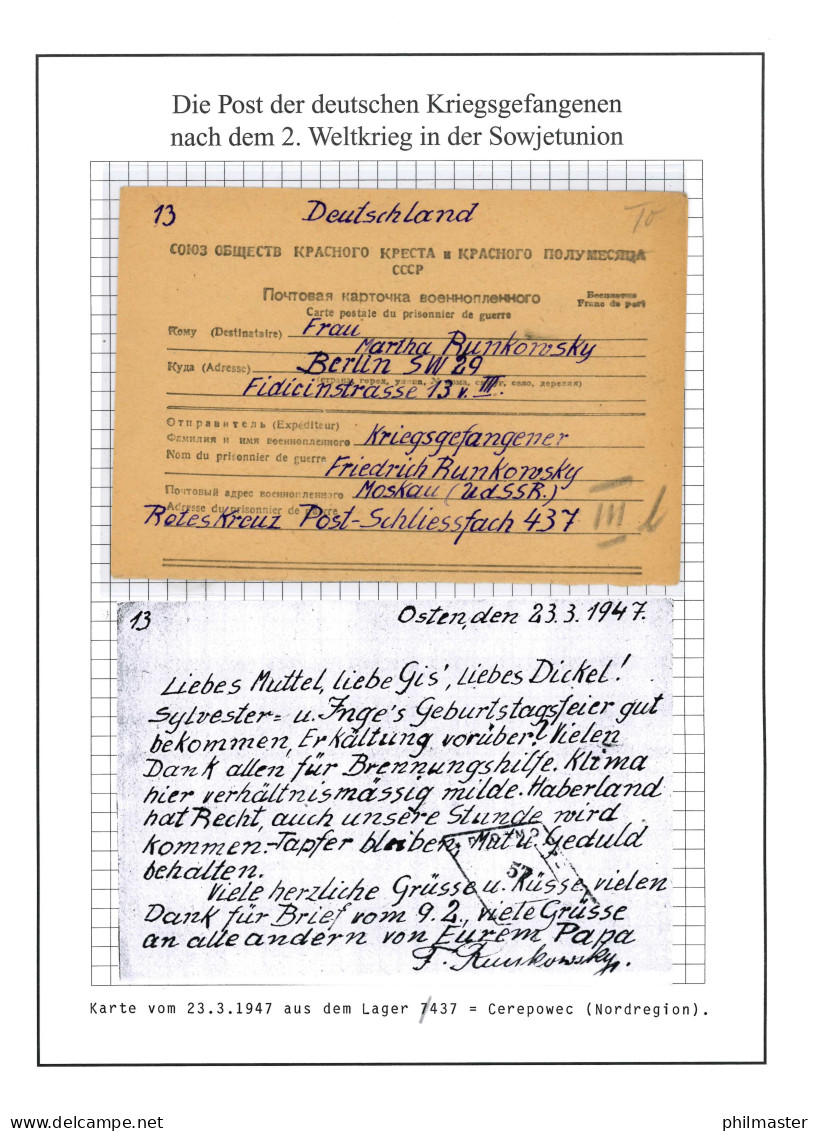 Die Post der deutschen Kriegsgefangenen
nach dem 2. Weltkrieg in der Sowjetunion
13 Deutschland To
СОЮЗ ОБЩЕСТВ КРАСНОГО КРЕСТА и КРАСНОГО ПОЛУМЕСЯЦА
СССР
Почтовая карточка военнопленного Бесплатно
Carte postale du prisonnier de guerre Franc de port
Кому (Destinataire) Frau
Martha Runkowsky
Куда (Adresse) Berlin SW 29
Fidicinstrasse 13 v. III.
Отправитель (Expéditeur)
Фамилия и имя военнопленного Kriegsgefangener
Nom du prisonnier de guerre Friedrich Runkowsky
Почтовый адрес военнопленного Moskau (UdSSR.)
Adresse du prisonnier de guerre
Rotes Kreuz Post-Schliessfach 437 III b
13 Osten, den 23.3.1947.
Liebes Muttel, liebe Gis', liebes Dickel!
Sylvester= u. Inge's Geburtstagsfeier gut
bekommen, Erkältung vorüber? Vielen
Dank allen für Brennungshilfe. Klima
hier verhältnismässig milde. Haberland
hat Recht, auch unsere Stunde wird
kommen.-Tapfer bleiben, Mut u. Geduld
behalten. 57
Viele herzliche Grüsse u. Küsse, vielen
Dank für Brief vom 9.2., viele Grüsse
an alle andern von Eurem Papa
F. Runkowsky.
Karte vom 23.3.1947 aus dem Lager 7/437 = Cerepowec (Nordregion).
www.delcampe.net philmaster